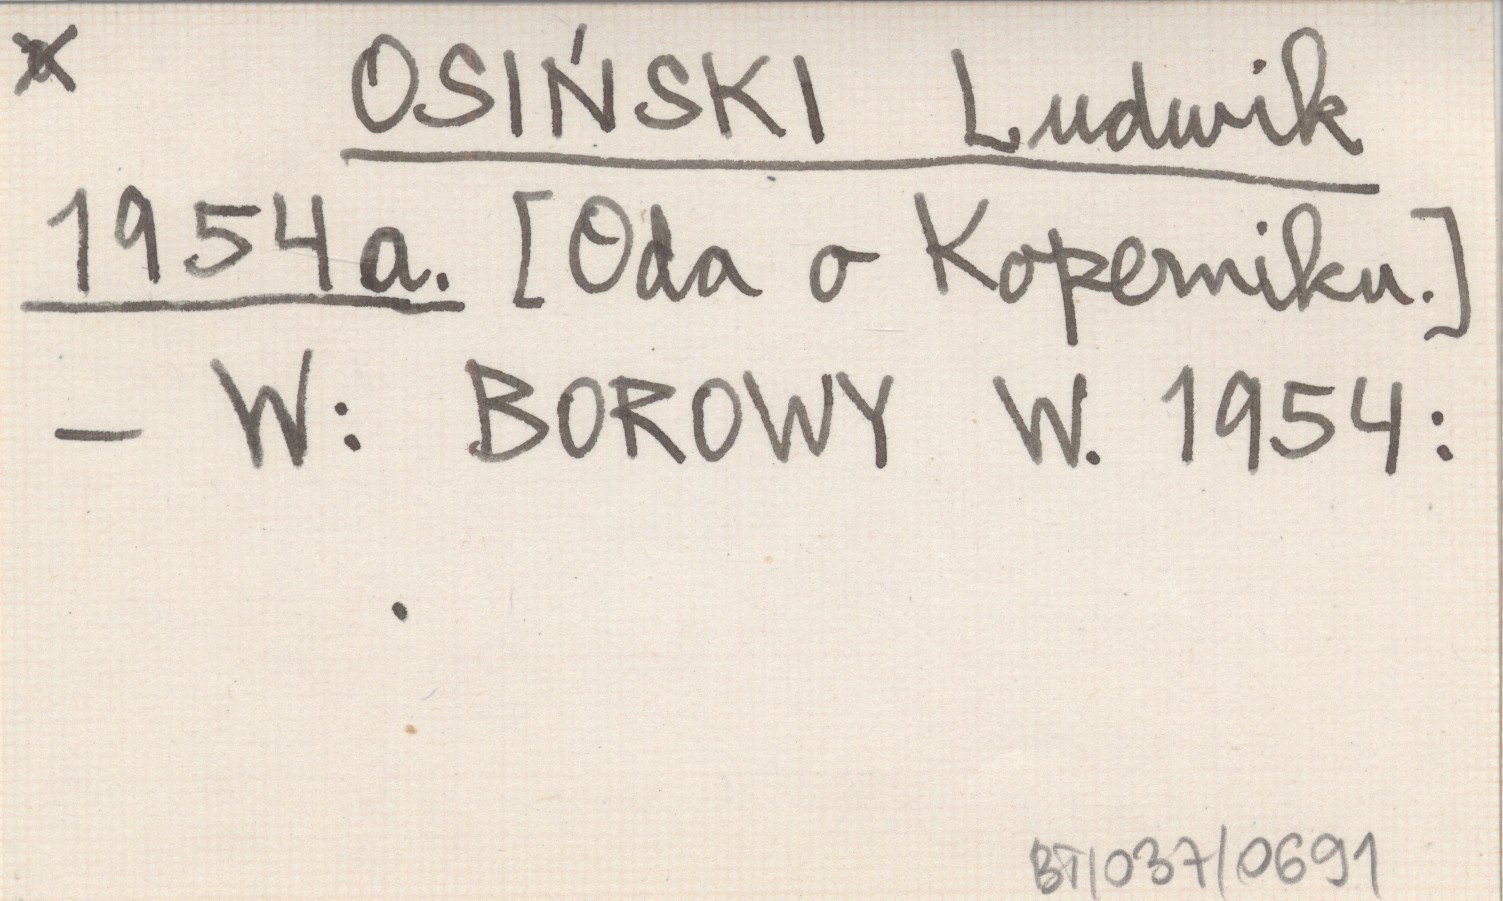 x OSIŃSKI Ludwik
1954a. [Oda o Koperniku.]
– W: BOROWY W. 1954:
BT/037/0691